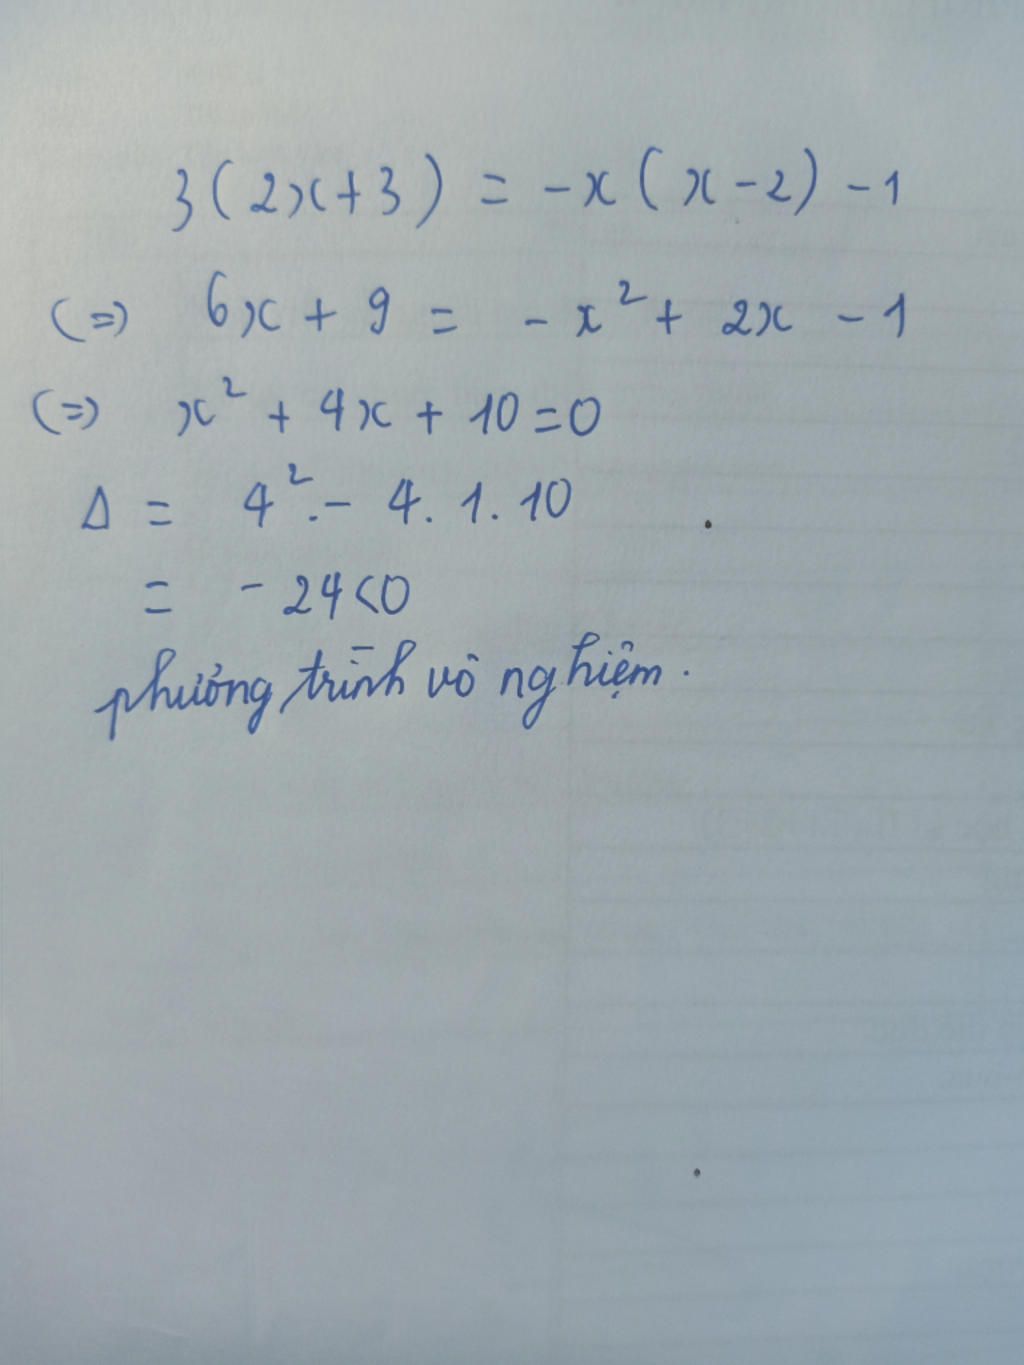 3(2x+3) = -x(x-2)-1
<=> 6x + 9 = -x² + 2x - 1
<=> x² + 4x + 10 = 0
Δ = 4² - 4.1.10
= -24<0
phương trình vô nghiệm.